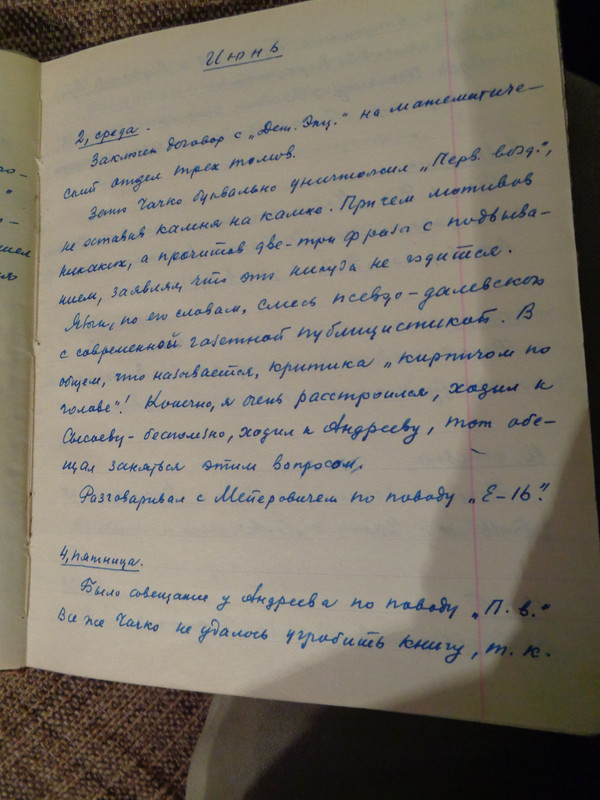 Июнь
2, среда.
Заключен договор с „Дет. Энц.“ на математиче-
ский отдел трех томов.
Зато Чачко буквально уничтожил „Перв. возд.“,
не оставив камня на камне. Причем мотивов
никаких, а прочитав две-три фразы с подвыва-
нием, заявляя, что это никуда не годится.
Язык, по его словам, смесь псевдо-далевского
с современной газетной публицистикой. В
общем, что называется, критика „кирпичом по
голове“! Конечно, я очень расстроился, ходил к
Сысоеву - бесполезно, ходил к Андрееву, тот обе-
щал заняться этим вопросом.
Разговаривал с Мейеровичем по поводу „Е-16“.
4, пятница.
Было совещание у Андреева по поводу „П. в.“
Все же Чачко не удалось угробить книгу, т. к.